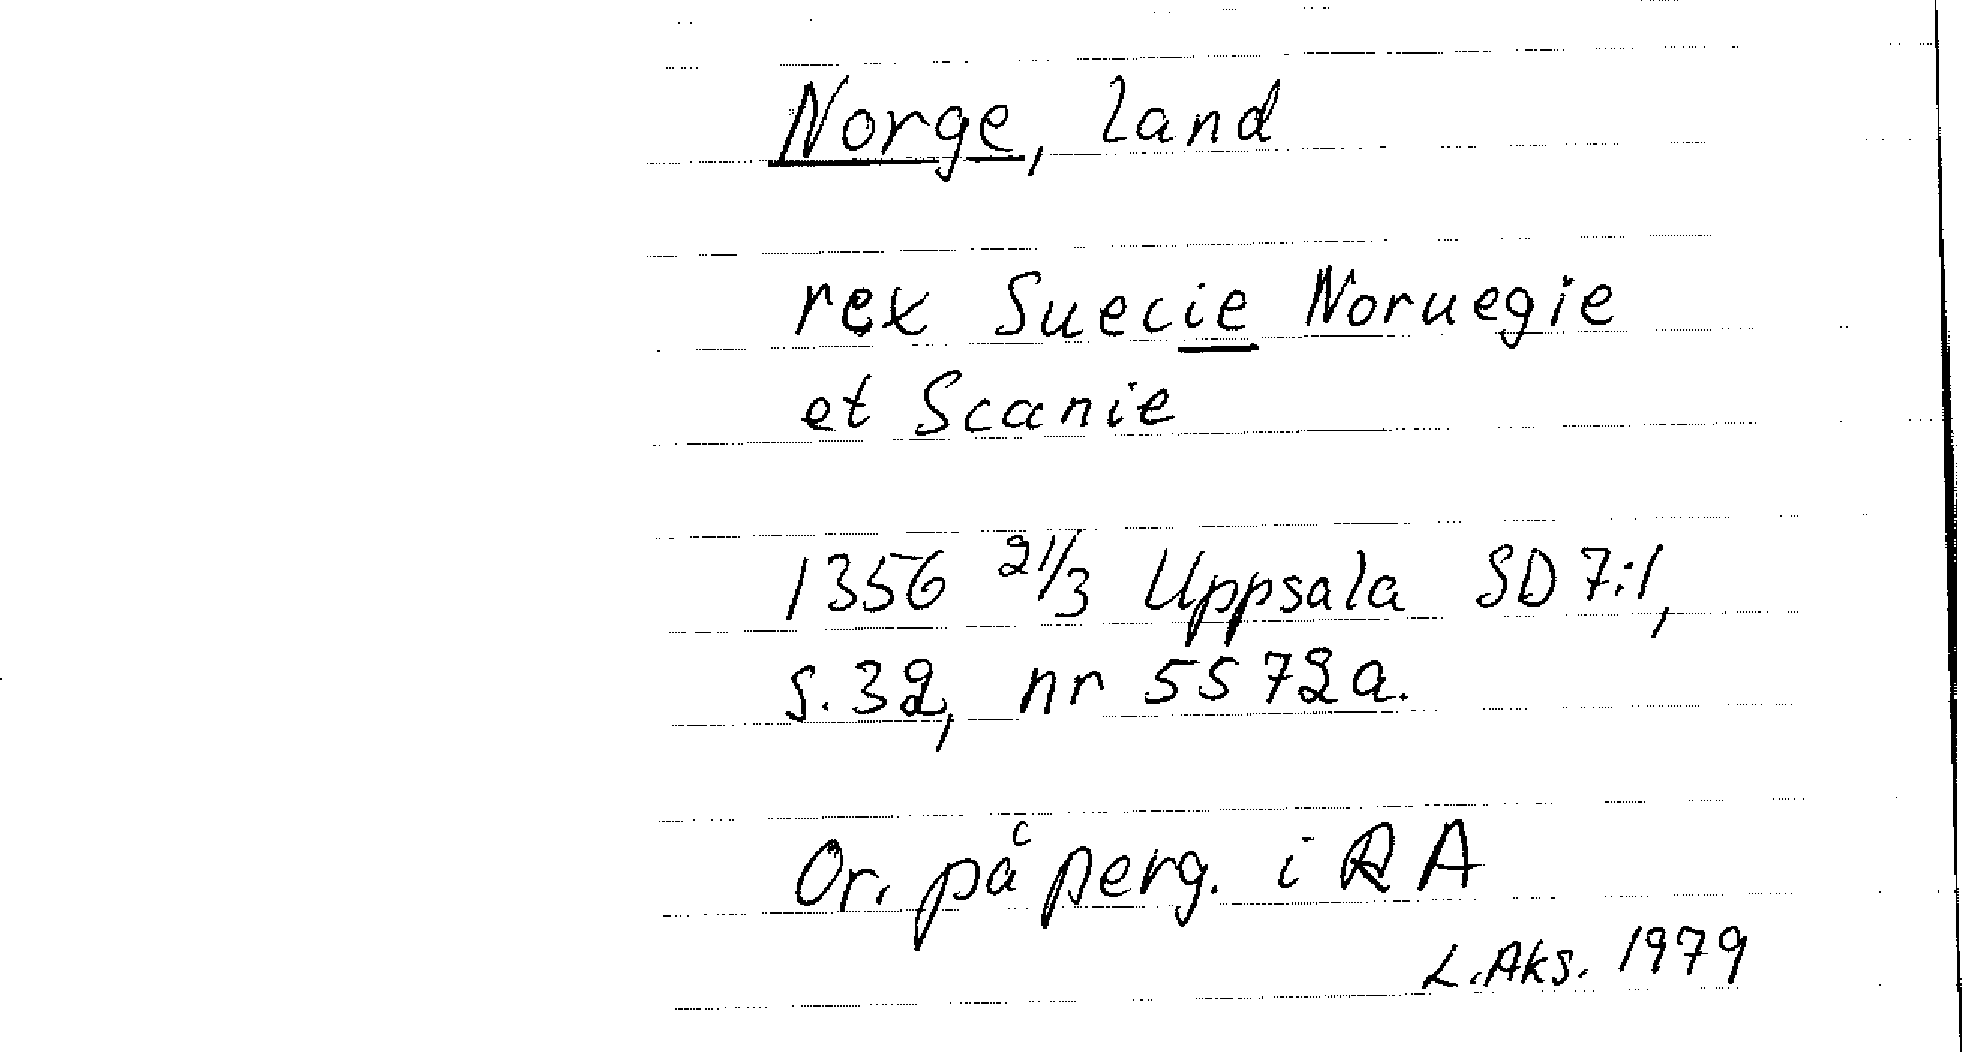 Norge, land
rex Suecie Noruegie
et Scanie
1356 21/3 Uppsala SD 7:1,
s. 32, nr 5572a.
Or. på perg. i RA
L. Aks. 1979